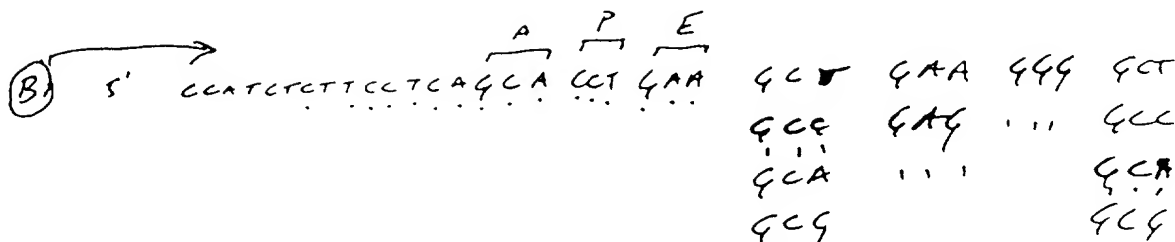 A P E
B 5' CCATCTCTTCCTCAGCA CCT GAA GCT GAA GGG GCT
GCC GAG ... GCC
GCA ... GCA
GCG GCG